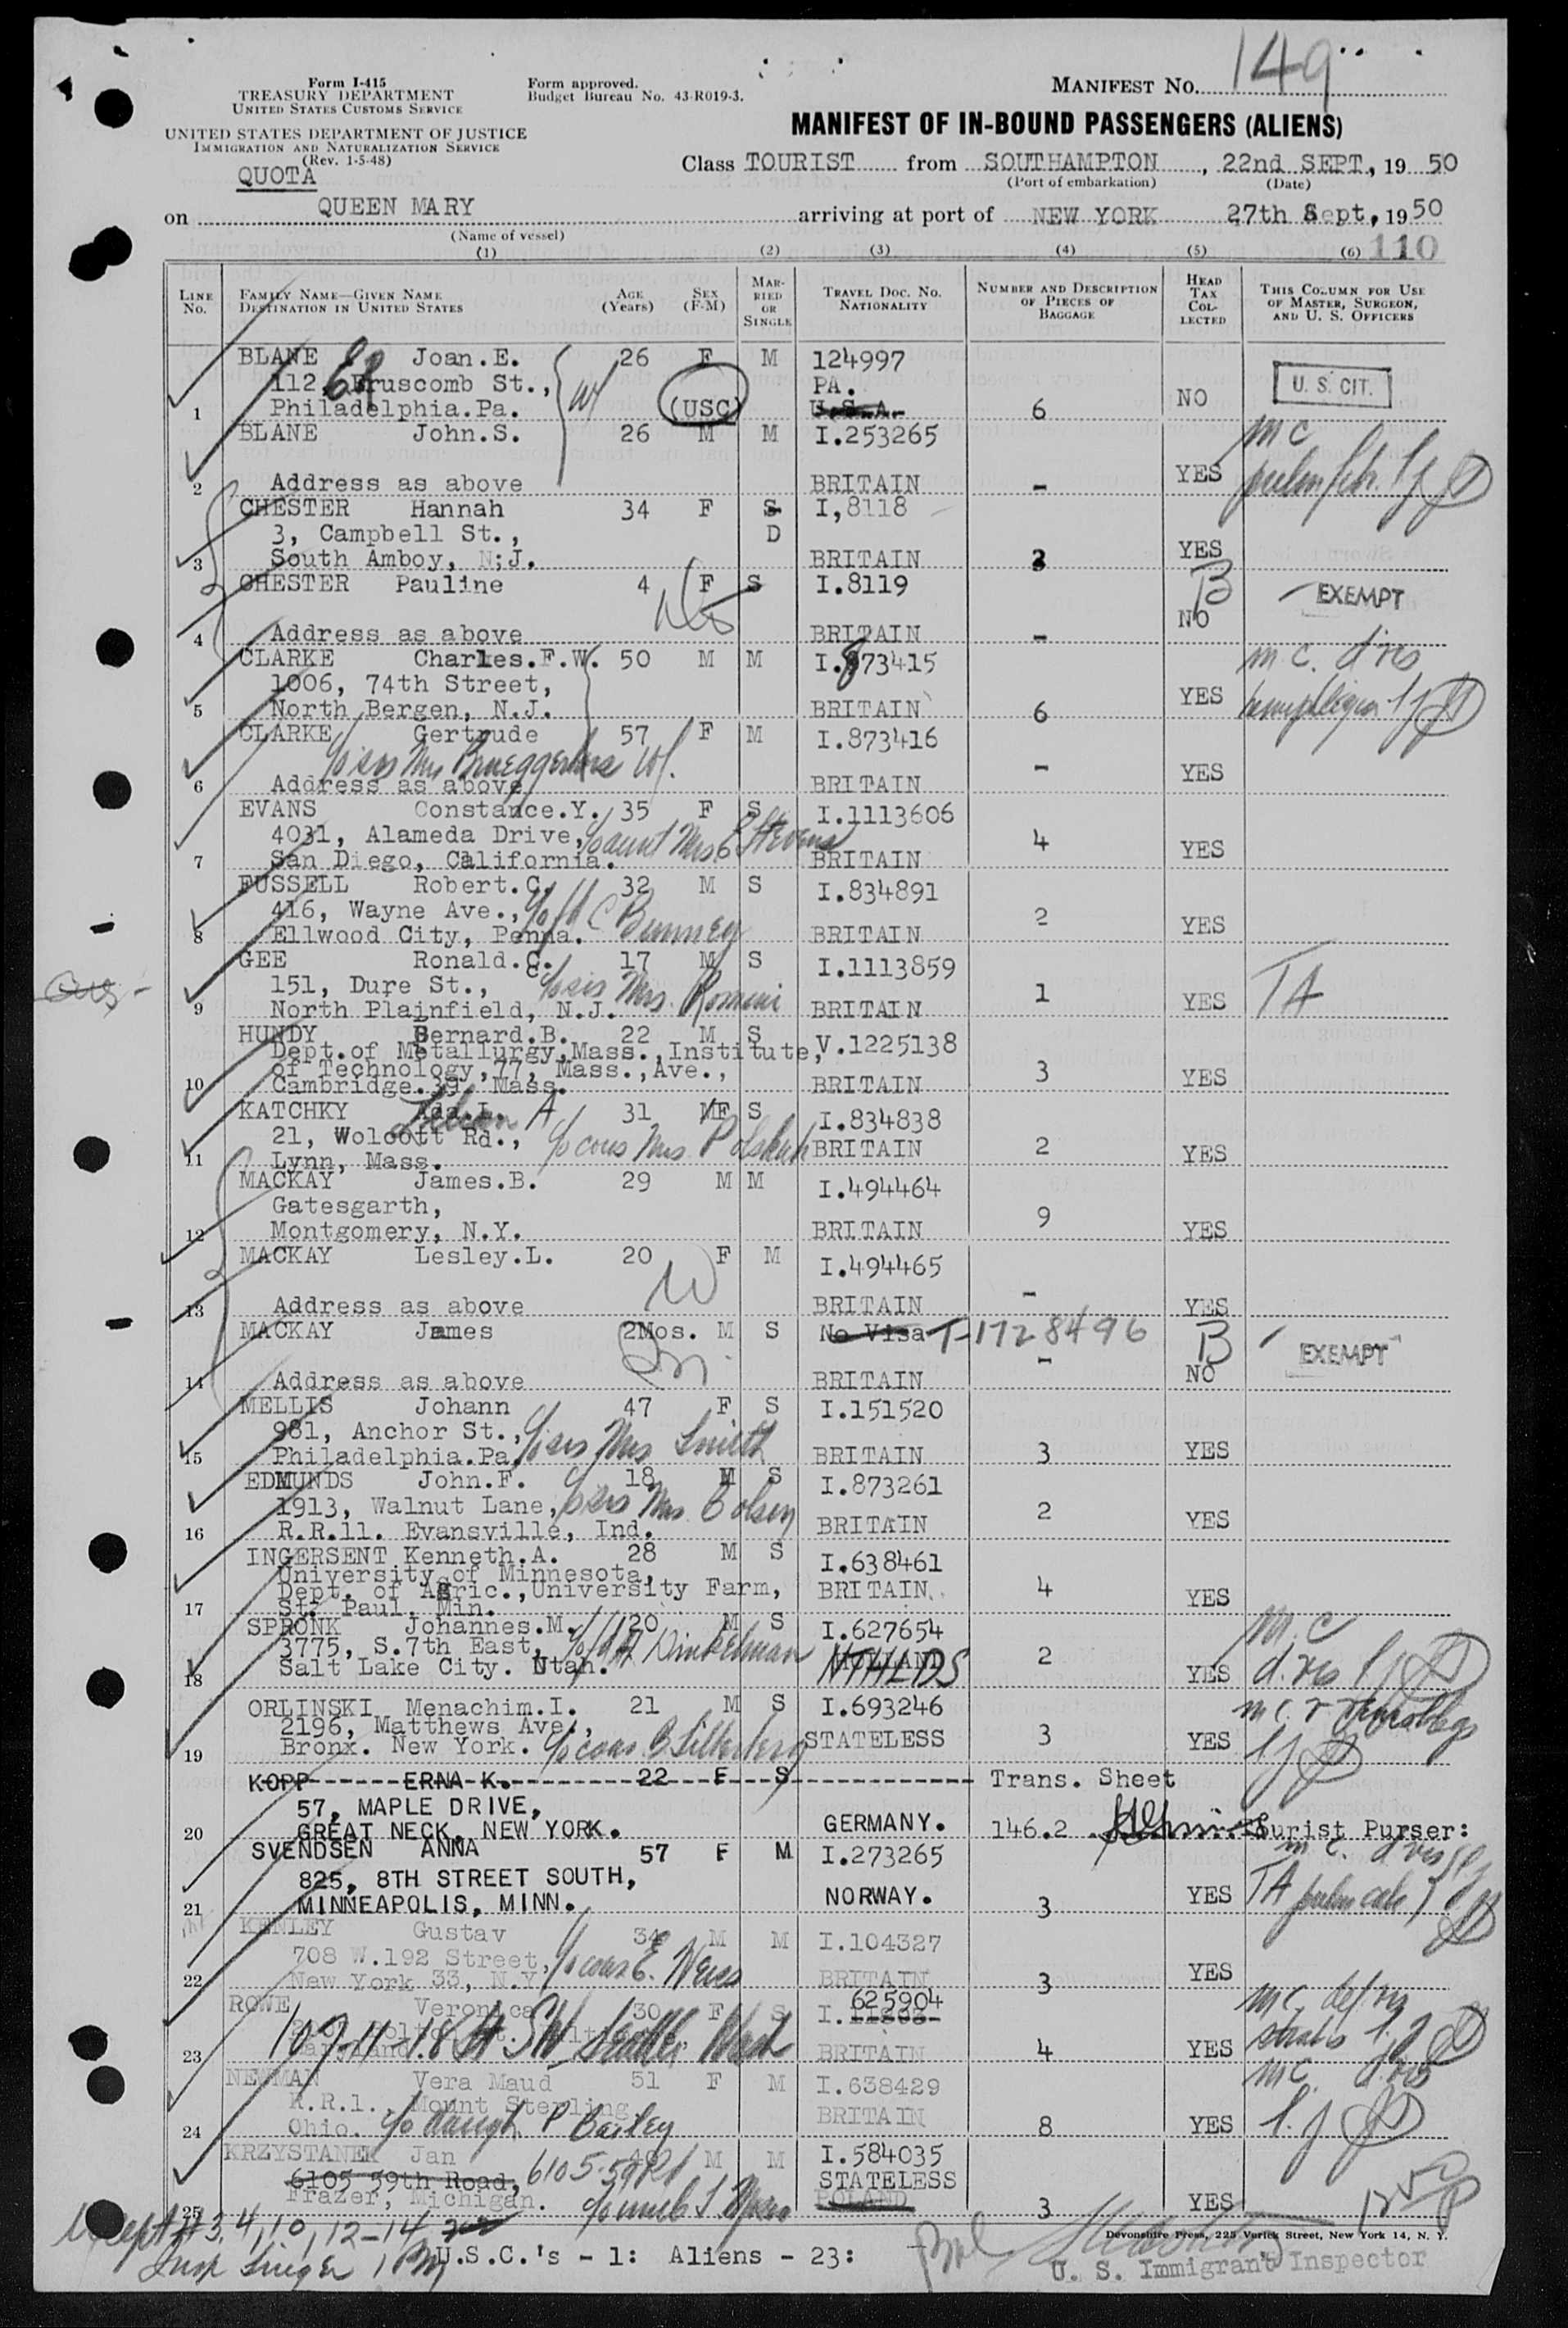 MANIFEST No. 149
Form I-415
TREASURY DEPARTMENT
UNITED STATES CUSTOMS SERVICE
Form approved.
Budget Bureau No. 43-R019-3.
UNITED STATES DEPARTMENT OF JUSTICE
IMMIGRATION AND NATURALIZATION SERVICE
(Rev. 1-5-48)
QUOTA
MANIFEST OF IN-BOUND PASSENGERS (ALIENS)
Class TOURIST from SOUTHAMPTON, 22nd SEPT, 19 50
(Port of embarkation) (Date)
on QUEEN MARY arriving at port of NEW YORK 27th Sept, 19 50
(Name of vessel)
(1) (2) (3) (4) (5) (6) 110
LINE No. FAMILY NAME—GIVEN NAME DESTINATION IN UNITED STATES AGE (Years) SEX (F-M) MARRIED OR SINGLE TRAVEL DOC. NO. NATIONALITY NUMBER AND DESCRIPTION OF PIECES OF BAGGAGE HEAD TAX COLLECTED THIS COLUMN FOR USE OF MASTER, SURGEON, AND U. S. OFFICERS
BLANE Joan.E. 26 F M 124997
112, Druscomb St., W PA. U. S. CIT.
1 Philadelphia.Pa. (USC) U.S.A. 6 NO
BLANE John.S. 26 M M I.253265 mc
2 Address as above BRITAIN - YES
CHESTER Hannah 34 F S I,8118
3, Campbell St., D
3 South Amboy, N;J. BRITAIN 3 YES
CHESTER Pauline 4 F S I.8119 B EXEMPT
4 Address as above BRITAIN - NO
CLARKE Charles.F.W. 50 M M I.873415 m c. d vis
1006, 74th Street,
5 North Bergen, N.J. BRITAIN 6 YES
CLARKE Gertrude 57 F M I.873416
c/o sis Mrs W.
6 Address as above BRITAIN - YES
EVANS Constance.Y. 35 F S I.1113606
4031, Alameda Drive, c/o aunt Mrs E Stevens 4
7 San Diego, California. BRITAIN YES
FUSSELL Robert.C. 32 M S I.834891
416, Wayne Ave., c/o C Bunney 2
8 Ellwood City, Penna. BRITAIN YES
GEE Ronald.C. 17 M S I.1113859
151, Dure St., c/o sis Mrs. Romini 1 TA
9 North Plainfield, N.J. BRITAIN YES
HUNDY Bernard.B. 22 M S V.1225138
Dept.of Metallurgy,Mass.,Institute,
of Technology,77, Mass.,Ave., 3
10 Cambridge.39. Mass. BRITAIN YES
KATCHKY Ada.I. Lilian A 31 MF S I.834838
21, Wolcott Rd., c/o cous Mrs. BRITAIN 2
11 Lynn, Mass. YES
MACKAY James.B. 29 M M I.494464
Gatesgarth, 9
12 Montgomery, N.Y. BRITAIN YES
MACKAY Lesley.L. 20 F M I.494465
W
13 Address as above BRITAIN - YES
MACKAY James 2Mos. M S No Visa T-1728496 B EXEMPT
14 Address as above BRITAIN - NO
MELLIS Johann 47 F S I.151520
981, Anchor St., c/o sis Mrs Smith
15 Philadelphia.Pa. BRITAIN 3 YES
EDMUNDS John.F. 18 M S I.873261
1913, Walnut Lane, c/o sis Mrs. Colsey 2
16 R.R.11. Evansville, Ind. BRITAIN YES
INGERSENT Kenneth.A. 28 M S I.638461
University of Minnesota,
Dept. of Agric.,University Farm, BRITAIN. 4
17 St. Paul. Min. YES
SPRONK Johannes.M. 20 M S I.627654 m. c
3775, S.7th East, c/o Dinkelman HOLLAND NTHLDS 2
18 Salt Lake City. Utah. YES d. vis
ORLINSKI Menachim.I. 21 M S I.693246
2196, Matthews Ave.,
19 Bronx. New York. c/o cous B Silberberg STATELESS 3 YES
KOPP ERNA K. 22 F S Trans. Sheet
57, MAPLE DRIVE,
20 GREAT NECK, NEW YORK. GERMANY. 146.2 Tourist Purser:
SVENDSEN ANNA 57 F M I.273265 m c. d vis
825, 8TH STREET SOUTH,
21 MINNEAPOLIS, MINN. NORWAY. 3 YES TA
KENLEY Gustav 34 M M I.104327
708 W.192 Street, c/o cous E. Weiss
22 New York 33, N.Y. BRITAIN 3 YES
ROWE Veronica 30 F S I. 625904 mc
109-11-18 St SW Seattle Wash
23 BRITAIN 4 YES
NEWMAN Vera Maud 51 F M I.638429 mc. d. vis
R.R.1., Mount Sterling BRITAIN
24 Ohio. c/o daugh. P Bailey 8 YES
KRZYSTANEK Jan 40 M M I.584035
6105 59th Road, 6105-59 Rd STATELESS
25 Frazer, Michigan. c/o POLAND 3 YES
Except # 3, 4, 10, 12-14
Devonshire Press, 225 Varick Street, New York 14, N. Y.
Insp Singer U.S.C.'s - 1: Aliens - 23:
U. S. Immigrant Inspector